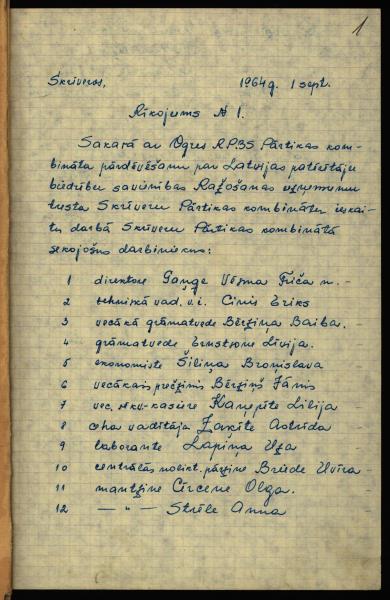 1
Skrīveros, 1964g. 1 sept.
Rīkojums № 1.
Sakarā ar Ogres RPBS Pārtikas kom-
bināta pārdēvēšanu par Latvijas patērētāju
biedrību savienības Ražošanas uzņēmumu
tresta Skrīveru Pārtikas kombinātu ieskai-
tu darbā Skrīveru Pārtikas kombinātā
sekojošus darbiniekus:
1 direktore Gaņģe Vēsma Friča m. -
2 tehniskā vad. v.i. Cinis Ēriks
3 vecākā grāmatvede Bērziņa Baiba. -
4 grāmatvede Ernstsone Līvija.
5 ekonomiste Šiliņa Broņislava
6 vecākais prečzinis Bērziņš Jānis
7 vec. rēķv.-kasiere Kampite Lilija
8 ceha vadītāja Zaķīte Astrīda
9 laborante Lapiņa Uza
10 centrālās nolikt. pārzine Briede Elvīra -
11 mantzine Circene Olga.
12 — " — Strēle Anna